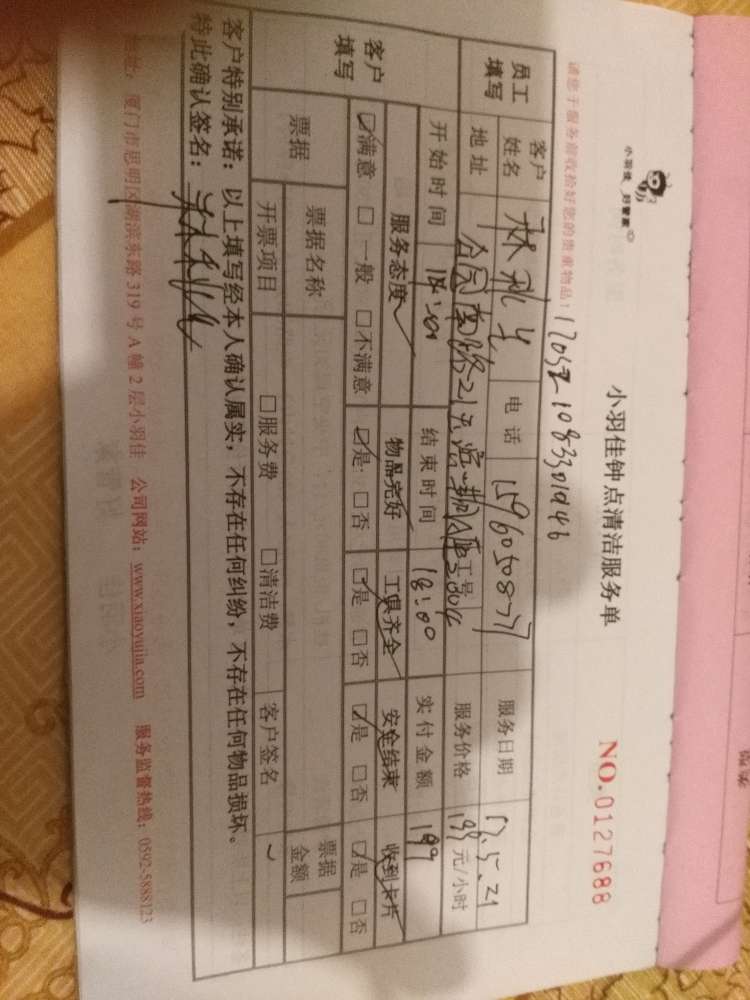 小羽佳 好管家
小羽佳钟点清洁服务单
NO.0127688
请您于服务前收拾好您的贵重物品!
员工填写 客户姓名 林 电话 服务日期 17.5.21
地址 服务价格 199 元/小时
开始时间 14:00 结束时间 18:00 实付金额 199
客户填写 服务态度 物品完好 工具齐全 安全结束 收到卡片
☑满意 □一般 □不满意 ☑是 □否 ☑是 □否 ☑是 □否 ☑是 □否
票据 票据名称 票据金额
开票项目 □服务费 □清洁费 客户签名
客户特别承诺:以上填写经本人确认属实,不存在任何纠纷,不存在任何物品损坏。
特此确认签名:
地址:厦门市思明区湖滨东路 319 号 A 幢 2 层小羽佳 公司网站:www.xiaoyujia.com 服务监督热线:0592-5888123